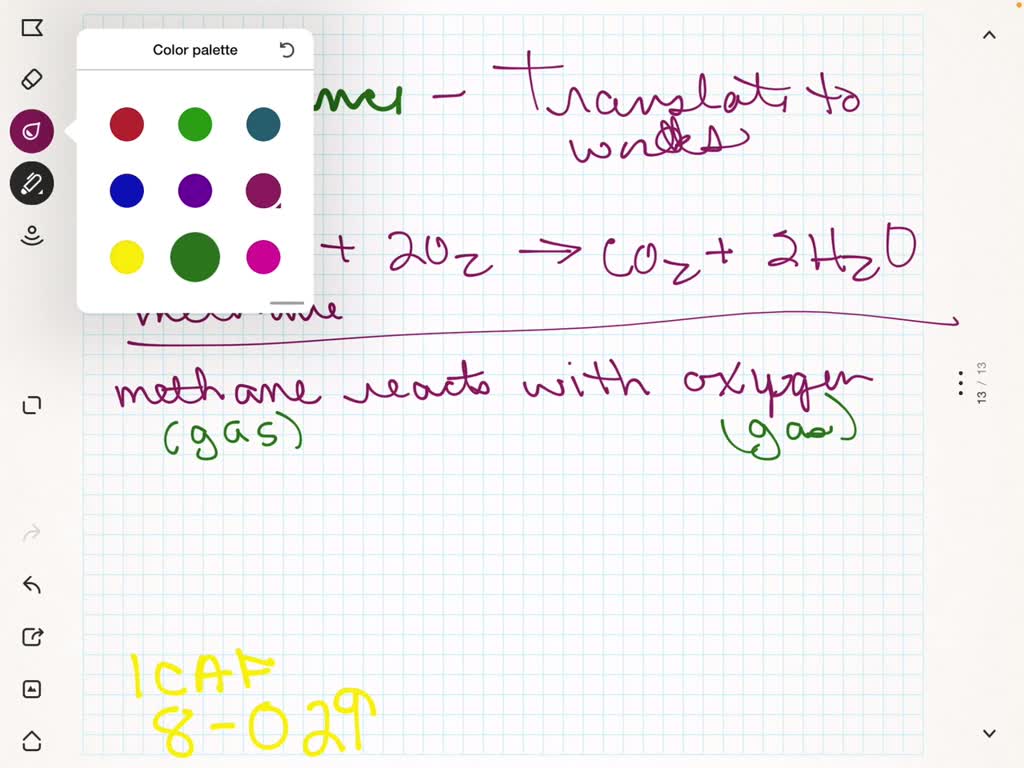 Color palette
– Translate to
words
+ 2O₂ → CO₂ + 2H₂O
methane
methane reacts with oxygen
(gas) (gas)
13 / 13
ICAF
8-029